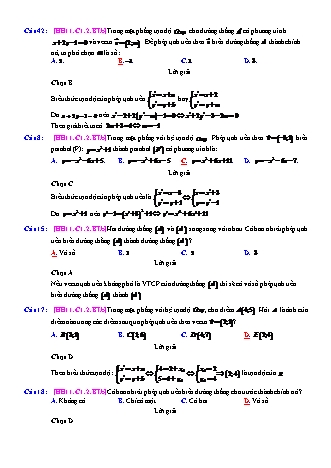 Câu 42: [HH11.C1.2.BT.b] Trong mặt phẳng tọa độ Oxy cho đường thẳng Δ có phương trình
x+2y-1=0 và vectơ v=(2;m). Để phép tịnh tiến theo v biến đường thẳng Δ thành chính
nó, ta phải chọn m là số:
A. 2. B. -1. C. 1. D. 3.
Lời giải
Chọn B
Biểu thức tọa độ của phép tịnh tiến
Câu 8: [HH11.C1.2.BT.b] Trong mặt phẳng với hệ tọa độ Oxy. Phép tịnh tiến theo biến
parabol (P): y=x²+1 thành parabol (P') có phương trình là:
A. y=-x²-6x+5. B. y=-x²+6x-5 C. y=x²+6x+11. D. y=-x²-6x-7.
Lời giải
Chọn C
Biểu thức tọa độ của phép tịnh tiến là
Câu 15: [HH11.C1.2.BT.b] Hai đường thẳng (d) và (d') song song với nhau. Có bao nhiêu phép tịnh
tiến biến đường thẳng (d) thành đường thẳng (d')?
A. Vô số B. 1 C. 2 D. 3
Lời giải
Chọn A
Nếu vectơ tịnh tiến không phải là VTCP của đường thẳng (d) thì sẽ có vô số phép tịnh tiến
biến đường thẳng (d) thành (d')
Câu 17: [HH11.C1.2.BT.b] Trong mặt phẳng với hệ tọa độ Oxy, cho điểm A(4;5). Hỏi A là ảnh của
điểm nào trong các điểm sau qua phép tịnh tiến theo vectơ
Lời giải
Chọn D
Theo biểu thức tọa độ: là tọa độ của
Câu 18: [HH11.C1.2.BT.b] Có bao nhiêu phép tịnh tiến biến đường thẳng cho trước thành chính nó?
A. Không có B. Chỉ có một C. Có hai D. Vô số
Lời giải
Chọn D